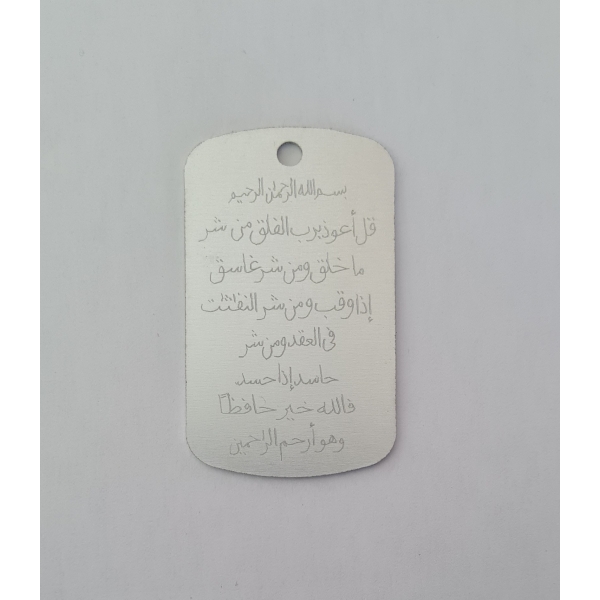 بسم الله الرحمن الرحيم
قل أعوذ برب الفلق من شر
ما خلق ومن شر غاسق
إذا وقب ومن شر النفثت
في العقد ومن شر
حاسد إذا حسد
فالله خير حافظا
وهو أرحم الراحمين